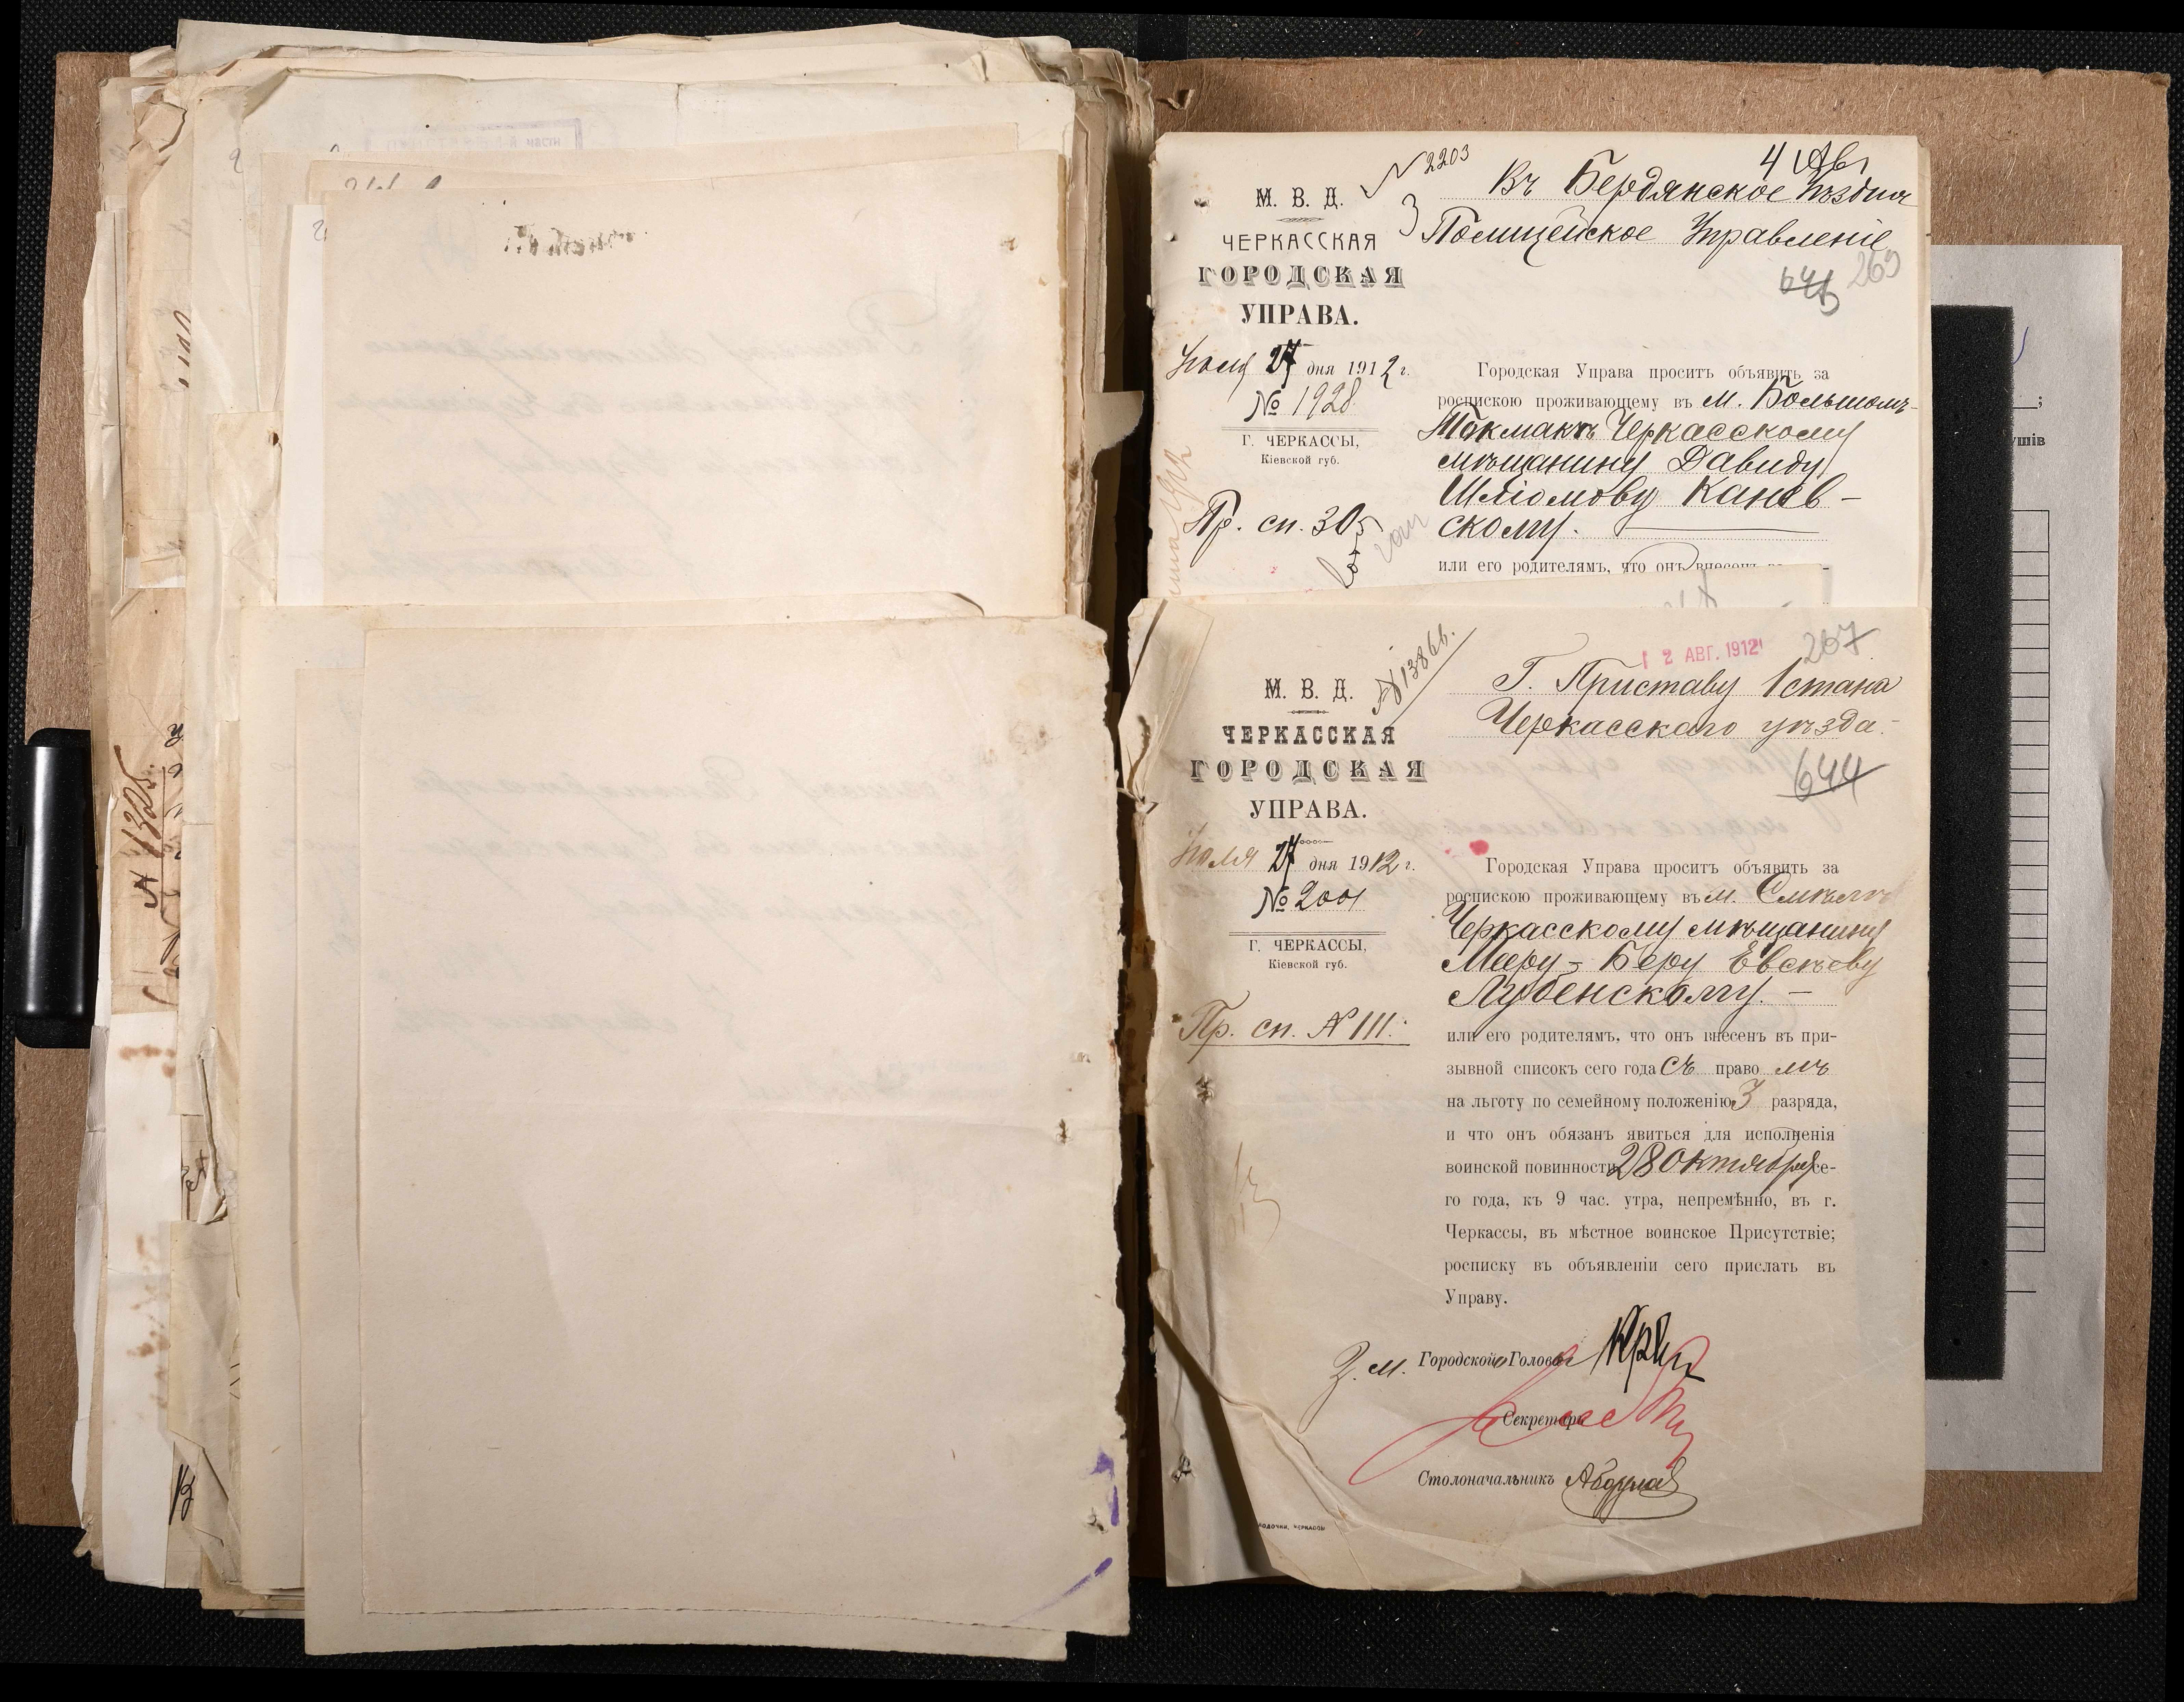 № 2203
4 Авг
М. В. Д.
ЧЕРКАССКАЯ
ГОРОДСКАЯ
УПРАВА.
Въ Бердянское Уѣздное
Полицейское Управленіе
269
Іюля 27 дня 1912 г.
№ 1928
Г. ЧЕРКАССЫ,
Кіевской губ.
Пр. сп. 305
Городская Управа проситъ объявить за
роспискою проживающему въ м. Большомъ-
Токмакѣ Черкасскому
мѣщанину Давиду
Шліомову Канев-
скому.
или его родителямъ, что онъ внесенъ
№ 13866.
12 АВГ. 1912
267
М. В. Д.
ЧЕРКАССКАЯ
ГОРОДСКАЯ
УПРАВА.
Г. Приставу 1 стана
Черкасскаго уѣзда.
644
Іюля 27 дня 1912 г.
№ 2001
Г. ЧЕРКАССЫ,
Кіевской губ.
Пр. сп. № 111.
Городская Управа проситъ объявить за
роспискою проживающему въ м. Смѣлѣ
Черкасскому мѣщанину
Мееру-Беру Евсѣеву
Лубенскому. —
или его родителямъ, что онъ внесенъ въ при-
зывной списокъ сего года съ право мъ
на льготу по семейному положенію 3 разряда,
и что онъ обязанъ явиться для исполненія
воинской повинности 28 октября се-
го года, къ 9 час. утра, непремѣнно, въ г.
Черкассы, въ мѣстное воинское Присутствіе;
росписку въ объявленіи сего прислать въ
Управу.
З. м. Городского Головы
Секретарь
Столоначальникъ
№ 1325